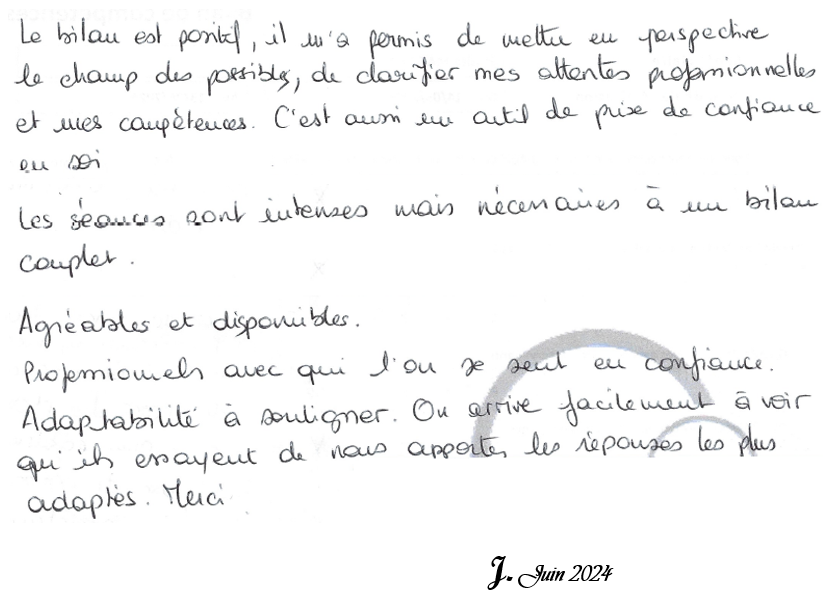 Le bilan est positif, il m'a permis de mettre en perspective
le champ des possibles, de clarifier mes attentes professionnelles
et mes compétences. C'est aussi un outil de prise de confiance
en soi
Les séances sont intenses mais nécessaires à un bilan
complet.
Agréables et disponibles.
Professionnels avec qui l'on se sent en confiance.
Adaptabilité à souligner. On arrive facilement à voir
qu'ils essayent de nous apporter les réponses les plus
adaptés. Merci
J. Juin 2024